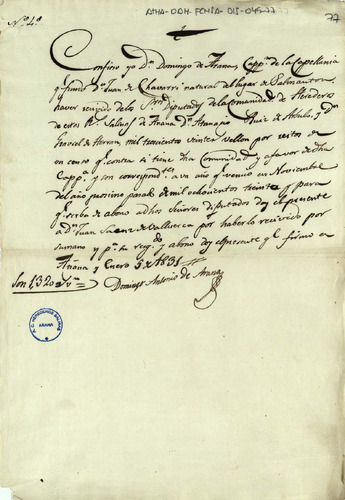 ATHA-DDH-FCHSA-015-045-77
77
Nº 4º
Confieso yo Dn. Domingo de Arana, Cappn. de la Capellania
q. fundó Dn. Juan de Chavarri natural del lugar de Salmanton
haver recivido de los Sres. Diputados de la comunidad de Herederos
de estas Rs. Salinas de Añana Dn. Ruiz de Ataulu, y Dn.
de Herran, mil trescientos veinte rs. vellon por reditos de
un censo q. contra si tiene dha Comunidad y a favor de dha
Capp. y son correspondtes. a un año q. vencio en Noviembre
del año proximo pasado de mil ochocientos treinta y para
q. sirva de abono a dhos Señores diputados doy el presente
a Dn. Juan Saenz de Valluerca por haberlo recivido por
su mano y pa. su resgdo. y abono doy el presente y lo firmo en
Añana y Enero 5 de 1831
Son 1320 rs. vn.
Domingo Antonio de Arana
A.C. HEREDEROS SALINAS
AÑANA